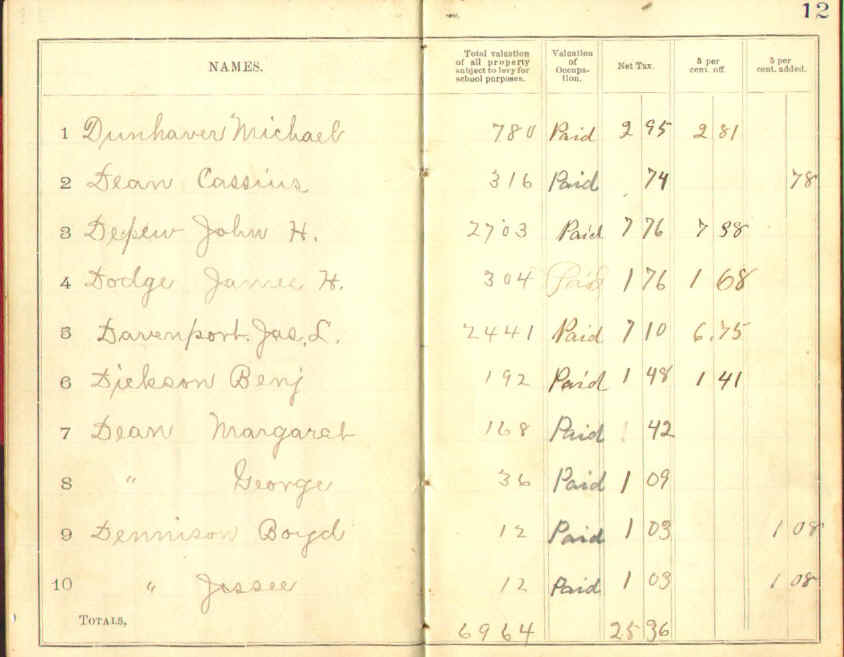 12
NAMES. Total valuation of all property subject to levy for school purposes. Valuation of Occupa- tion. Net Tax. 5 per cent. off. 5 per cent. added.
1 Dunhaver Michael 780 Paid 2 95 2 81
2 Dean Cassius 316 Paid 74 78
3 Depew John H. 2703 Paid 7 76 7 38
4 Dodge James H. 304 Paid 1 76 1 68
5 Davenport. Jas. L. 2441 Paid 7 10 6.75
6 Dickson Benj 192 Paid 1 48 1 41
7 Dean Margaret 168 Paid 42
8 " George 36 Paid 1 09
9 Dennison Boyd 12 Paid 1 03 1 08
10 " Jessee 12 Paid 1 03 1 08
TOTALS, 6964 25 36